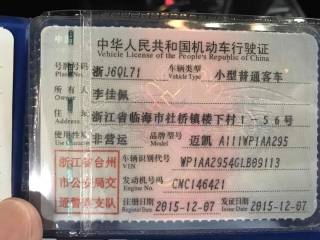 中华人民共和国机动车行驶证
Vehicle License of the People's Republic of China
号牌号码 浙J6QL71 车辆类型 小型普通客车
Plate No. Vehicle Type
所有人 李佳佩
住址 浙江省临海市杜桥镇楼下村1-56号
使用性质 非营运 品牌型号 迈凯 A111WP1AA295
Use Character
浙江省台州 车辆识别代号 WP1AA2954GLB09113
VIN
市公安局交 发动机号码 CNC146421
Engine No.
通警察支队 注册日期 2015-12-07 发证日期 2015-12-07
Register Date Issue Date